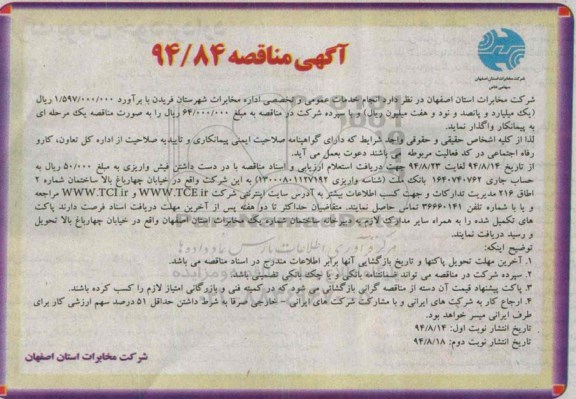 شرکت مخابرات استان اصفهان
سهامی خاص
آگهی مناقصه ۹۴/۸۴
شرکت مخابرات استان اصفهان در نظر دارد انجام خدمات عمومی و تخصصی اداره مخابرات شهرستان فریدن با برآورد ۱/۵۹۷/۰۰۰/۰۰۰ ریال
(یک میلیارد و پانصد و نود و هفت میلیون ریال) و با سپرده شرکت در مناقصه به مبلغ ۶۴/۰۰۰/۰۰۰ ریال را به صورت مناقصه یک مرحله ای
به پیمانکار واگذار نماید.
لذا از کلیه اشخاص حقیقی و حقوقی واجد شرایط که دارای گواهینامه صلاحیت ایمنی پیمانکاری و تاییدیه صلاحیت از اداره کل تعاون، کارو
رفاه اجتماعی در کد فعالیت مربوطه می باشند دعوت بعمل می آید.
از تاریخ ۹۴/۸/۱۴ لغایت ۹۴/۸/۲۳ جهت دریافت استعلام ارزیابی و اسناد مناقصه با در دست داشتن فیش واریزی به مبلغ ۵۰/۰۰۰ ریال به
حساب جاری ۱۶۴۰۷۴۰۷۶۲ بانک ملت (شناسه واریزی ۱۳۰۰۰۸۰۱۱۲۷۱۹۲) به این شرکت واقع در خیابان چهارباغ بالا ساختمان شماره ۲
اطاق ۲۱۶ مدیریت تدارکات و جهت کسب اطلاعات بیشتر به آدرس سایت اینترنتی شرکت WWW.TCE.ir و WWW.TCI.ir مراجعه
و یا با شماره تلفن ۳۶۶۶۰۱۴۱ تماس حاصل نمایند. متقاضیان حداکثر تا دو هفته پس از آخرین مهلت دریافت اسناد فرصت دارند پاکت
های تکمیل شده را به همراه سایر مدارک لازم به دبیرخانه ساختمان شماره یک مخابرات استان اصفهان واقع در خیابان چهارباغ بالا تحویل
و رسید دریافت نمایند.
توضیح اینکه:
۱. آخرین مهلت تحویل پاکتها و تاریخ بازگشایی آنها برابر اطلاعات مندرج در اسناد مناقصه می باشد.
۲. سپرده شرکت در مناقصه می تواند ضمانتنامه بانکی و یا چک بانکی تضمینی باشد.
۳. پاکت پیشنهاد قیمت آن دسته از مناقصه گرانی بازگشائی می شود که در کمیته فنی و بازرگانی امتیاز لازم را کسب کرده باشند.
۴. ارجاع کار به شرکت های ایرانی و یا مشارکت شرکت های ایرانی - خارجی صرفا به شرط داشتن حداقل ۵۱ درصد سهم ارزشی کار برای
طرف ایرانی میسر خواهد بود.
تاریخ انتشار نوبت اول: ۹۴/۸/۱۴
تاریخ انتشار نوبت دوم: ۹۴/۸/۱۸
شرکت مخابرات استان اصفهان